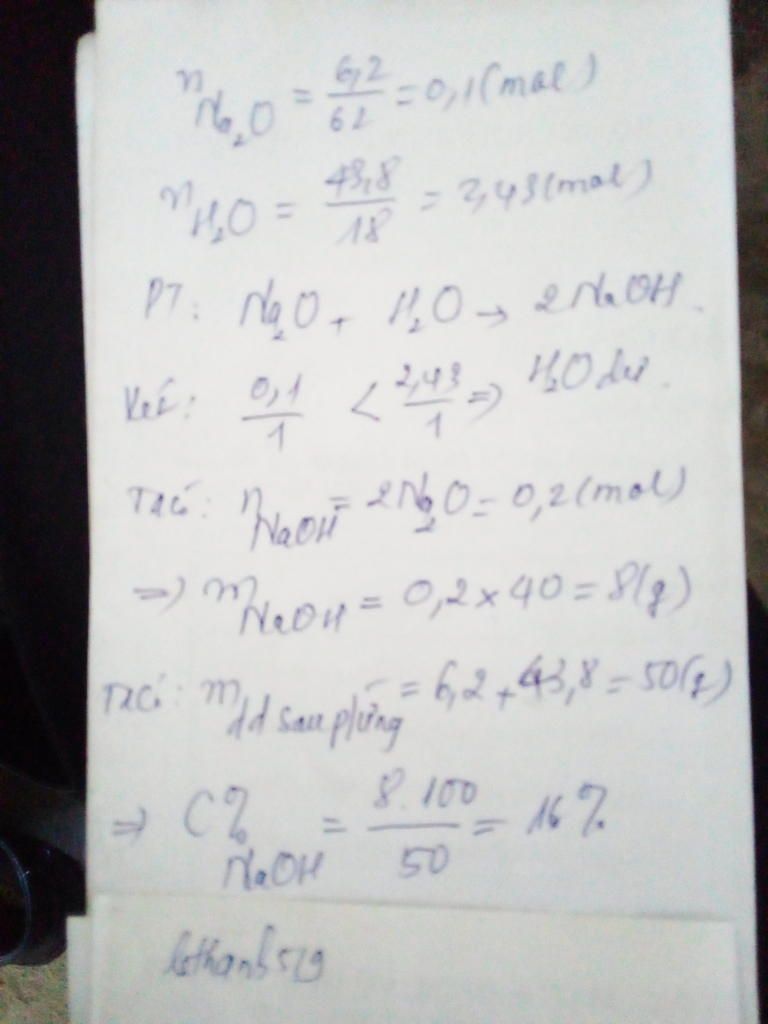 nNa₂O = 6,2/62 = 0,1(mol)
nH₂O = 43,8/18 = 2,43(mol)
PT: Na₂O + H₂O → 2NaOH.
Xét: 0,1/1 < 2,43/1 => H₂O dư.
Ta có: nNaOH = 2Na₂O = 0,2(mol)
=> mNaOH = 0,2 × 40 = 8(g)
Ta có: mdd sau p/ứng = 6,2 + 43,8 = 50(g)
=> C%NaOH = 8.100/50 = 16%